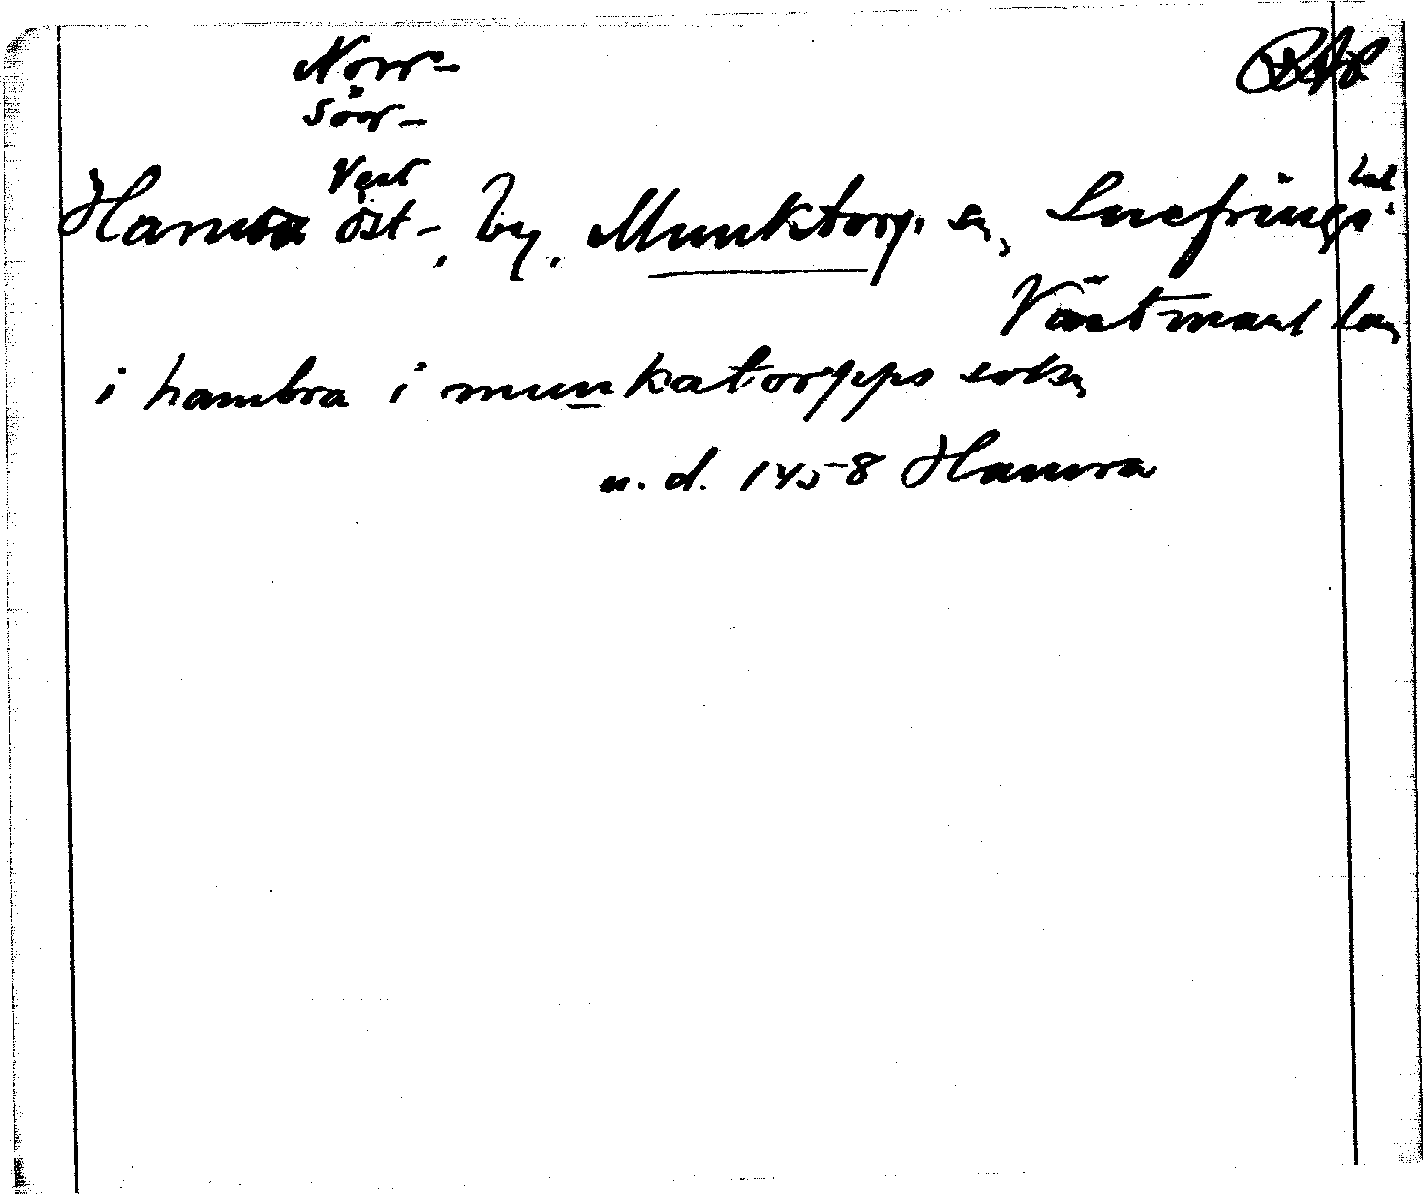 Norr-
Sör-
Väst
Hamra öst-, by, Munktorp, sn, Snefringe
Västmanl. län
i hambra i munkatorpps sokn
u. d. 1458 Hamra